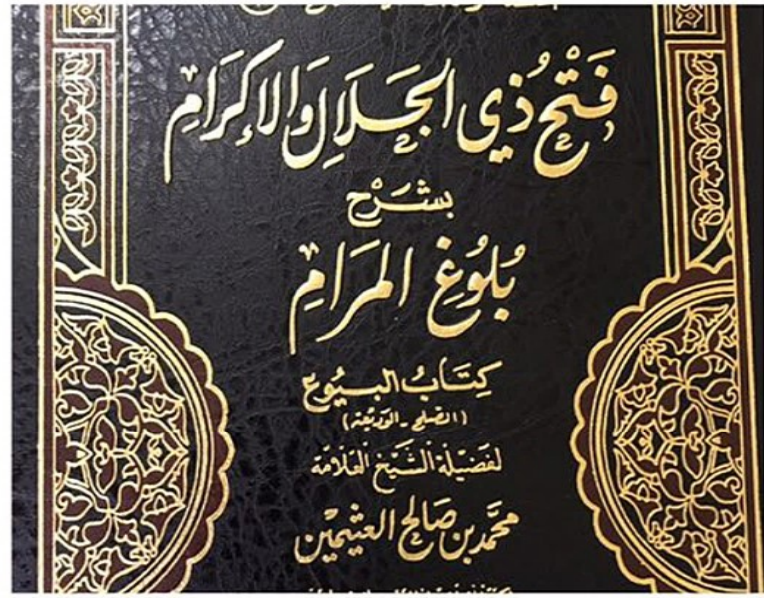 فَتْحُ ذِي الجَلَالِ وَالإِكْرَامِ
بِشَرْحِ
بُلُوغِ المَرَامِ
كِتَابُ البُيُوع
(الصلح - الوديعة)
لفَضِيلَة الشَّيْخ العَلَّامَة
محمّد بن صَالح العثيمين